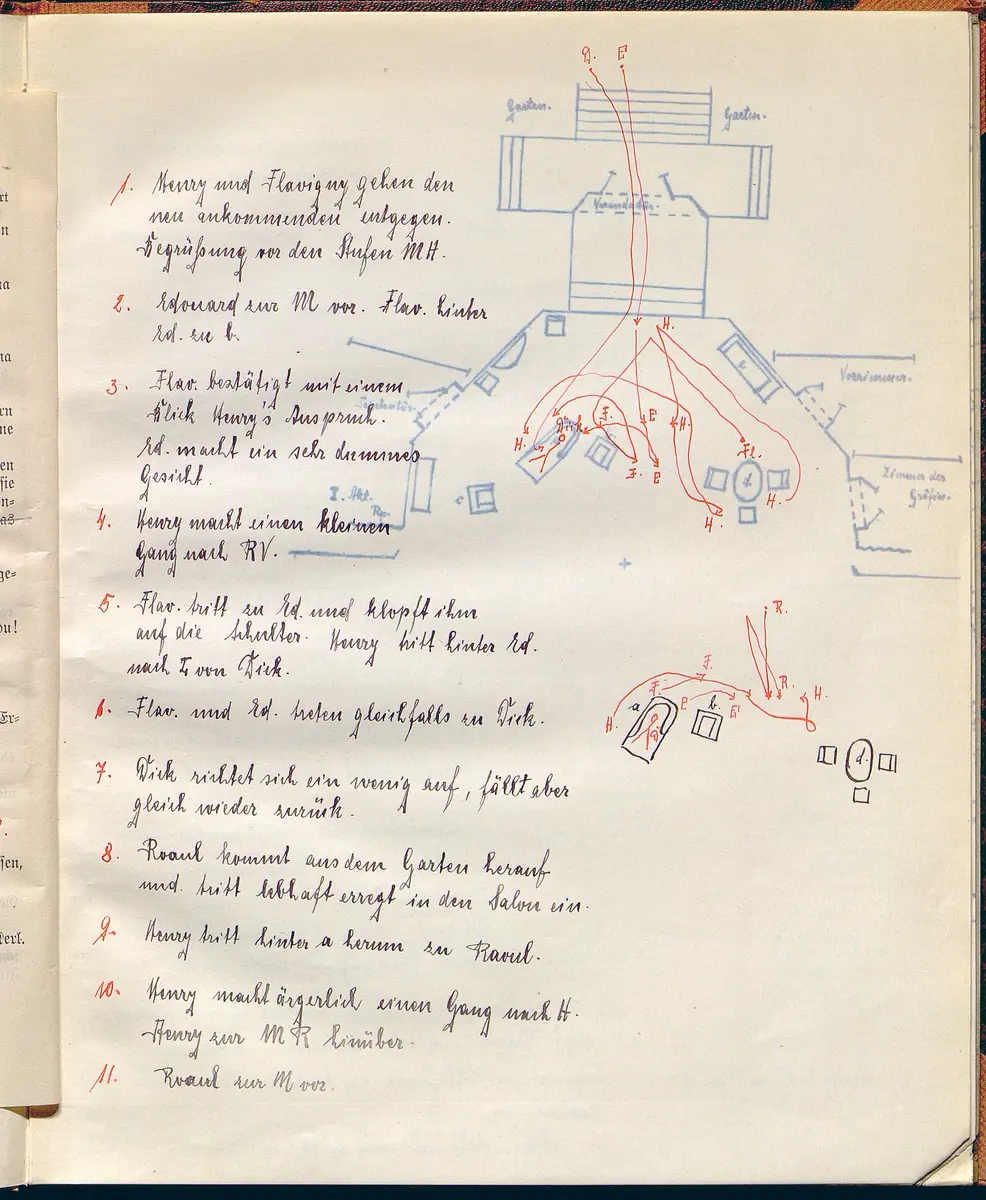 D. E.
Garten.
Garten.
Verandatür.
1. Henry und Flavigny gehen den
neu ankommenden entgegen.
Begrüßung vor den Stufen MH.
2. Edouard zur M vor. Flav. hinter
Ed. zu b.
3. Flav. bestätigt mit einem
Blick Henry's Anspruch.
Ed. macht ein sehr dummes
Gesicht.
4. Henry macht einen kleinen
Gang nach RV.
H.
c
Vorzimmer.
Zimmer der
Gräfin.
H. Dick F. E H. Fl.
F. E d. H.
H.
I. Akt.
e
5. Flav. tritt zu Ed. und klopft ihm
auf die Schulter. Henry tritt hinter Ed.
nach L von Dick.
6. Flav. und Ed. treten gleichfalls zu Dick.
7. Dick richtet sich ein wenig auf, fällt aber
gleich wieder zurück.
8. Raoul kommt aus dem Garten herauf
und tritt lebhaft erregt in den Salon ein.
9. Henry tritt hinter a herum zu Raoul.
10. Henry macht ärgerlich einen Gang nach H.
Henry zur MR hinüber.
11. Raoul zur M vor.
R.
F.
F. R. H.
H. a E b. E
d.